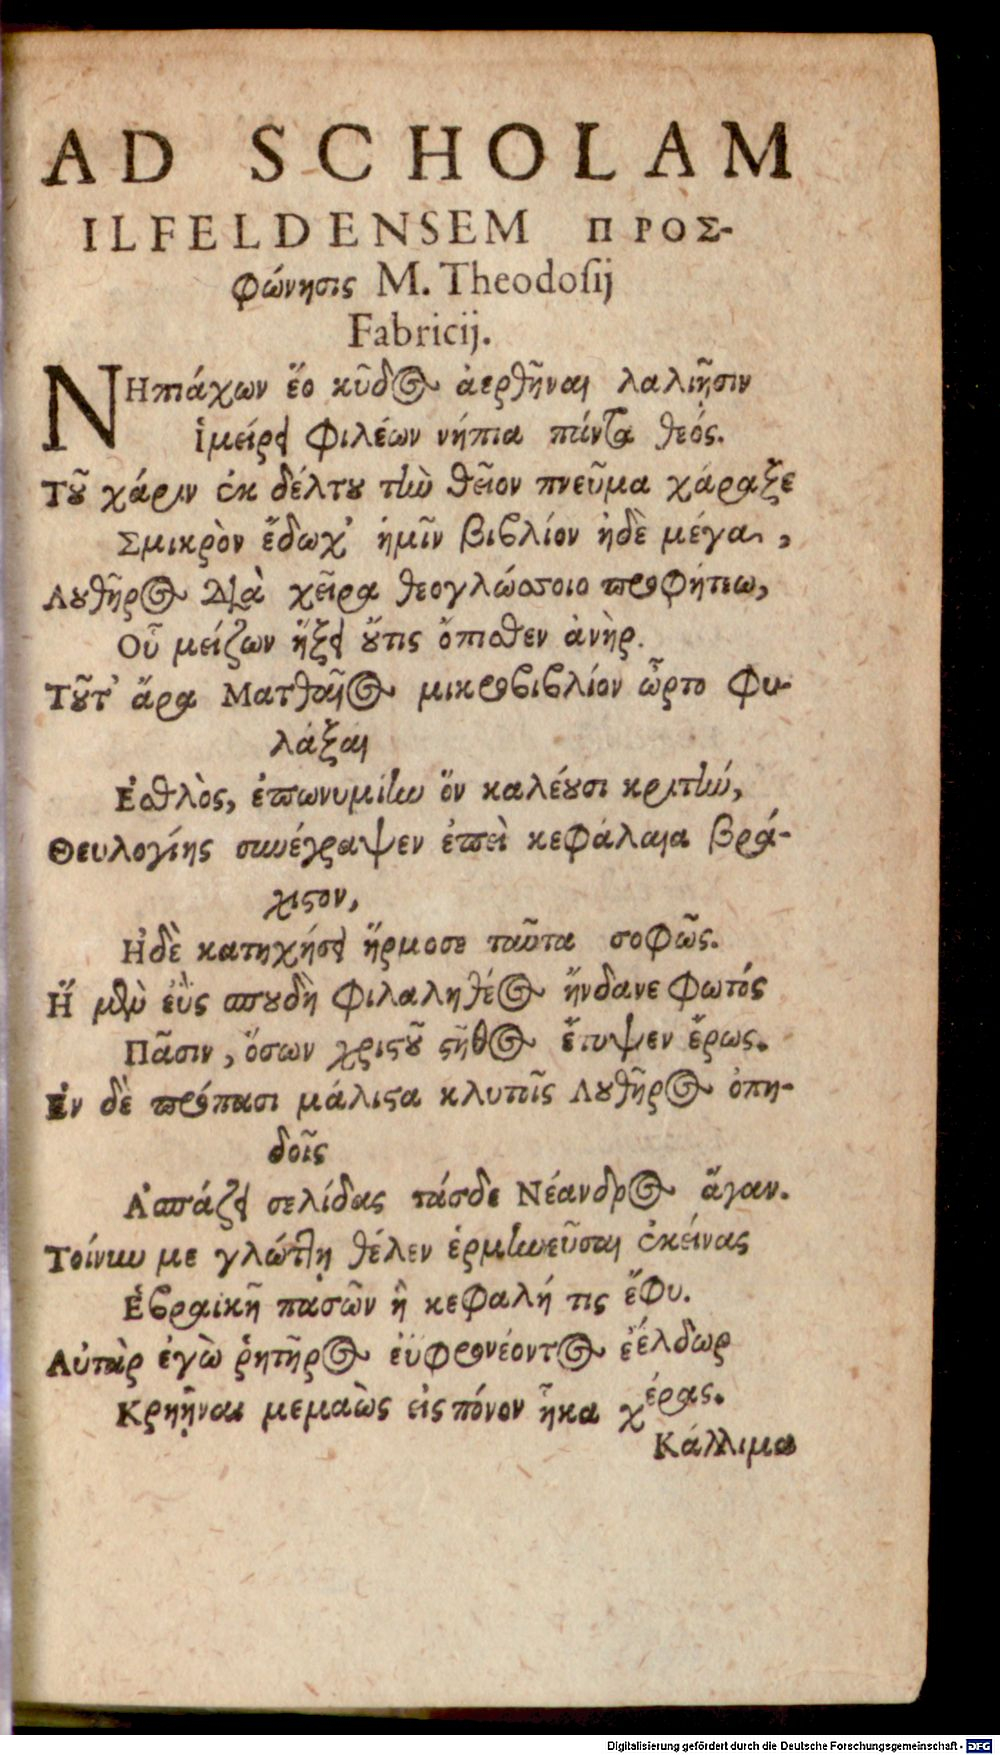 AD SCHOLAM
ILFELDENSEM ΠΡΟΣ-
φώνησις M. Theodoſij
Fabricij.
ΝΗπιάχων ἕο κῦδος ἀερθῆναι λαλιῇσιν
ἱμείρει φιλέων νήπια πάντα θεός.
Τοῦ χάριν ἐκ δέλτου τὴν θεῖον πνεῦμα χάραξε
Σμικρὸν ἔδωχ' ἡμῖν βιβλίον ἠδὲ μέγα,
Λουθῆρος διὰ χεῖρα θεογλώσσοιο προφήτεω,
Οὗ μείζων ἥξει οὔτις ὄπισθεν ἀνὴρ.
Τοῦτ' ἄρα Ματθαῖος μικροβιβλίον ὦρτο φυ-
λάξαι
Ἐσθλὸς, ἐπωνυμίην ὃν καλέουσι κριτὴν,
Θευλογίης συνέγραψεν ἐπεὶ κεφάλαια βρά-
χιστον,
Ἠδὲ κατηχήσει ἥρμοσε ταῦτα σοφῶς.
Ἣ μὲν ἐῢς σπουδὴ φιλαληθέος ἥνδανε φωτός
Πᾶσιν, ὅσων χριστοῦ στῆθος ἔτυψεν ἔρως.
Ἐν δὲ πρόπασι μάλιστα κλυτοῖς Λουθῆρος ὀπη-
δοῖς
Ἀσπάζει σελίδας τάσδε Νέανδρος ἄγαν.
Τοίνυν με γλώττῃ θέλεν ἑρμηνεῦσαι ἐκείνας
Ἑβραικῇ πασῶν ἣ κεφαλή τις ἔφυ.
Αὐτὰρ ἐγὼ ῥητῆρος ἐϋφρονέοντος ἐέλδωρ
Κρηῆναι μεμαὼς εἰς πόνον ἧκα χέρας.
Κάλλιμα